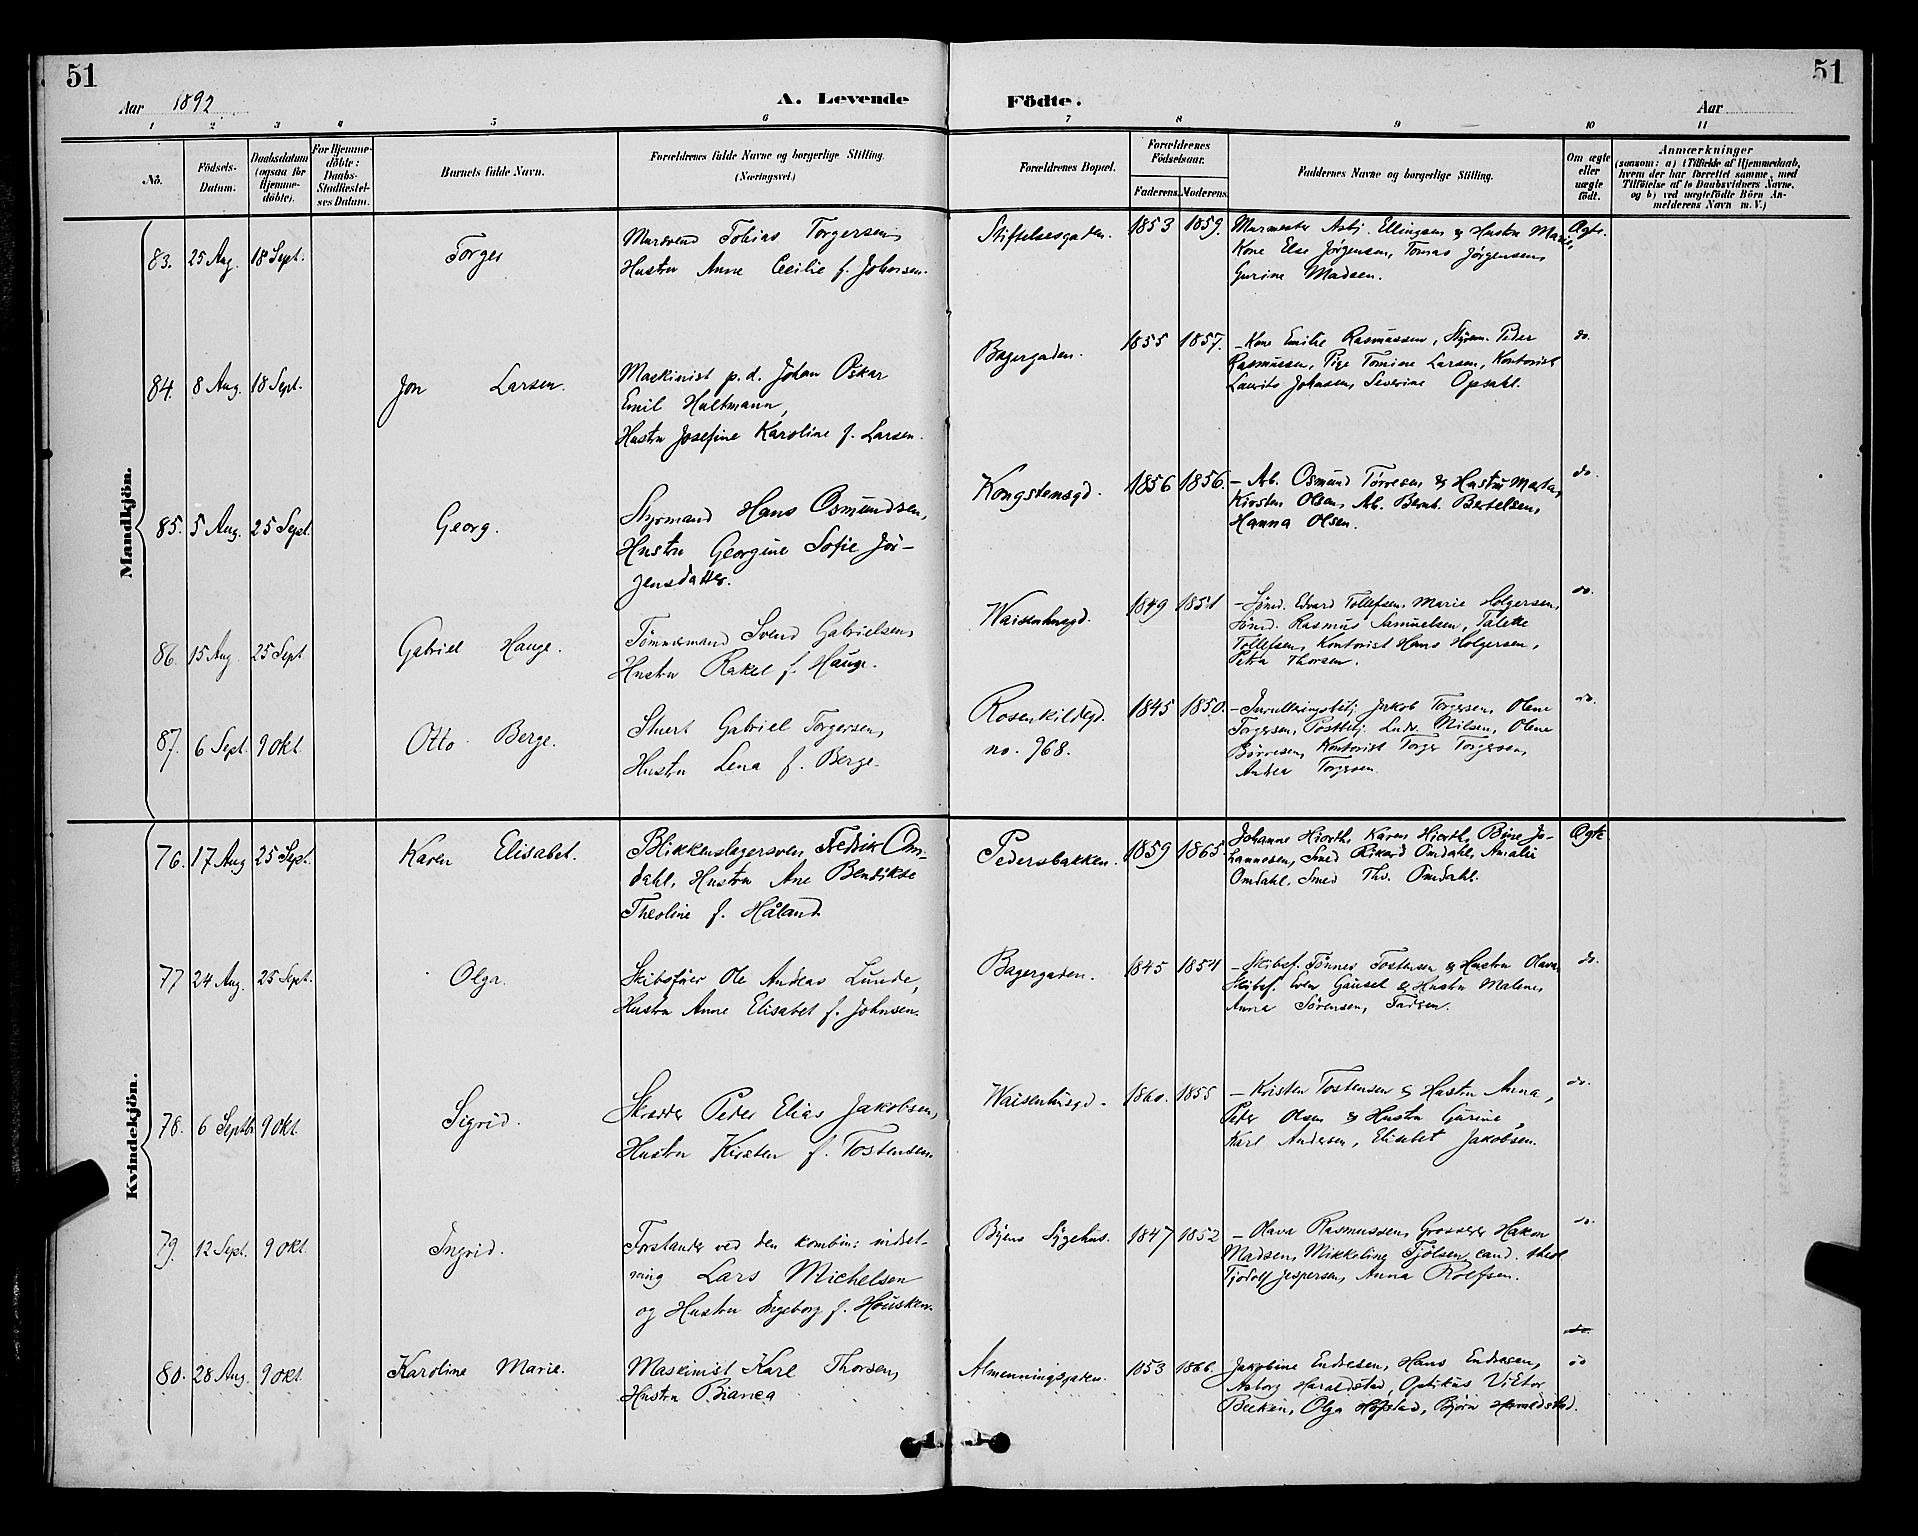 51
51
Aar 1892
A. Levende
Födte.
Aar
1 2 3 4 5 6 7 8 9 10 11
No.
Födsels-
Datum.
Daabsdatum
(ogsaa for
Hjemme-
döbte).
For Hjemme-
döbte:
Daabs-
Stadfæstel-
ses Datum.
Barnets fulde Navn.
Forældrenes fulde Navne og borgerlige Stilling.
(Næringsvei.)
Forældrenes Bopæl.
Forældrenes
Födselsaar.
Faderens.
Moderens.
Faddernes Navne og borgerlige Stilling.
Om ægte
eller
uægte
födt.
Anmærkninger
(saasom: a) i Tilfælde af Hjemmedaab,
hvem der har forrettet samme, med
Tilföielse af to Daabsvidners Navne,
og b) ved uægtefödte Börn An-
melderens Navn m. V.)
Mandkjön.
83. 25 Aug. 18 Sept. Torger
Mursvend Tobias Torgersen,
Hustru Anne Cecilie f. Johnsen.
Stiftelsesgaden. 1853 1859.
Murmester Asbj. Ellingsen & Hustru Marie,
Kone Else Jørgensen, Tomas Jørgensen,
Gurine Madsen.
Ægte.
84. 8 Aug. 18 Sept. Jon Larsen.
Maskinist p.d. Johan Oskar
Emil Hultmann,
Hustru Josefine Karoline f. Larsen.
Bagergaden. 1855 1857.
- Kone Emilie Rasmussen, Styrm. Peder
Rasmussen, Pige Tomine Larsen, Kontorist
Laurits Johnsen, Severine Opsahl.
do.
85. 5 Aug. 25 Sept. Georg.
Styrmand Hans Osmundsen,
Hustru Georgine Sofie Jör-
gensdatter.
Kongstensgd. 1856 1856.
- Arb. Osmund Tørresen & Hustru Marta,
Kirsten Olsen, Arb. Bernh. Bertelsen,
Hanna Olsen.
do.
86. 15 Aug. 25 Sept Gabriel Hauge.
Tømmermand Svend Gabrielsen,
Hustru Rakel f. Hauge.
Waisenhusgd. 1849 1851
- Sømd. Edvard Tollefsen, Marie Holgersen,
Sømd. Rasmus Samuelsen, Talette
Tollefsen, Kontorist Hans Holgersen,
Petra Thorsen.
do.
87. 6 Sept. 9 Okt Otto Berge.
Stuert Gabriel Torgersen,
Hustru Lena f. Berge.
Rosenkildegd.
no. 968.
1845 1850.
- Inrulleringsbetj. Jakob Torgersen, Olene
Torgersen, Postbetj. Ludv. Nilsen, Olene
Børresen, Kontorist Torger Torgersen,
Andrea Torgersen.
do.
Kvindekjön.
76. 17 Aug 25 Sept. Karen Elisabet.
Blikkenslagersven Fedrik Om-
dahl, Hustru Ane Bendikte
Theoline f. Håland
Pedersbakken. 1859 1865.
Johanne Hiorth, Karen Hiorth, Bine Jo-
hannesen, Smed Rikard Omdahl, Amalie
Omdahl, Smed Thv. Omdahl.
Ægte
77 24 Aug. 25 Sept. Olga.
Skibsfører Ole Andreas Lunde,
Hustru Anne Elisabet f. Johnsen.
Bagergaden. 1845 1854
- Skibsf. Tönnes Tostensen & Hustru Olava,
Skibsf. Sven Gausel & Hustru Malene,
Anna Sörensen, Fadgen.
do.
78. 6 Septbr. 9 Okt. Sigrid.
Skræder Peder Elias Jakobsen,
Hustru Kirsten f. Tostensen.
Waisenhusgd. 1860. 1855
- Kristen Tostensen & Hustru Anna,
Peder Olsen & Hustru Gurine,
Karl Andersen, Elisabet Jakobsen.
do.
79. 12 Sept. 9 Okt. Ingrid.
Forstander ved den kombin: indret-
ning Lars Michelsen
og Hustru Ingeborg f. Housken.
Byens Sygehus. 1847 1852
- Olava Rasmussen, Grosserer Hakon
Madsen, Mikkeline Tjölsen, cand. theol
Tjodolf Jespersen, Anna Rolfsen.
do.
do.
80. 28 Aug. 9 Okt. Karoline Marie.
Maskinist Karl Thorsen,
Hustru Bianca
Almenningsgaden. 1853 1866.
Jakobine Endresen, Hans Endresen,
Asborg Haraldstad, Optikus Viktor
Beeken, Olga Hofstad, Björn Haraldstad.
do